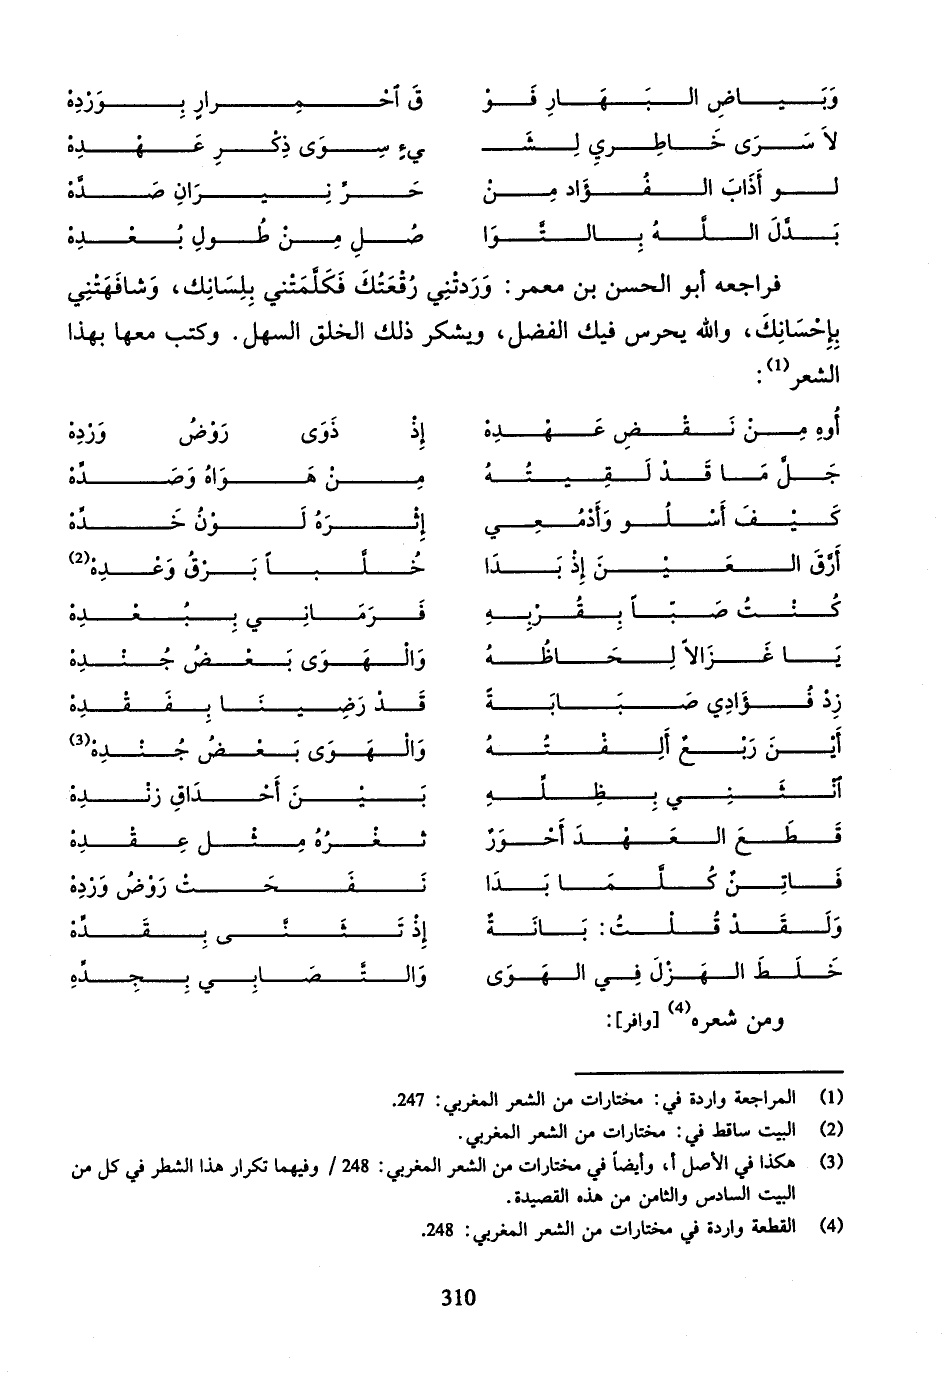 وَبَيَاضِ البَهَارِ فَوْ قَ ٱحْمِرارٍ بِوَرْدِهْ
لاَ سَرَى خَاطِرِي لِشَيءٍ سِوَى ذِكْرِ عَهْدِهْ
لو أَذَابَ الفُؤَاد مِنْ حَرِّ نِيرَانِ صَدَّهْ
بَدَّلَ اللَّهُ بِالتَّوَا صُلِ مِنْ طُولِ بُعْدِهْ
فراجعه أبو الحسن بن معمر: وَرَدتْنِي رُقْعَتُكَ فَكَلَّمَتْني بِلِسَانِك، وَشافَهَتْنِي
بِإِحْسَانِكَ، والله يحرس فيك الفضل، ويشكر ذلك الخلق السهل. وكتب معها بهذا
الشعر(1):
أُوهِ مِنْ نَقْضِ عَهْدِهْ إِذْ ذَوَى رَوْضُ وَرْدِهْ
جَلَّ مَا قَدْ لَقِيتُهُ مِنْ هَوَاهُ وَصَدَّهْ
كَيْفَ أَسْلُو وَأَدْمُعِي إِثْرَهُ لَوْنُ خَدَّهْ
أَرَّقَ العَيْنَ إِذْ بَدَا خُلَّباً بَرْقُ وَعْدِهْ(2)
كُنْتُ صَبّاً بِقُرْبِهِ فَرَمَانِي بِبُعْدِهْ
يَا غَزَالاً لِحَاظُهُ وَالْهَوَى بَعْضُ جُنْدِهْ
زِدْ فُؤَادِي صَبَابَةً قَدْ رَضِينَا بِفَقْدِهْ
أَيْنَ رَبْعٌ أَلِفْتُهُ وَالْهَوَى بَعْضُ جُنْدِهْ(3)
ٱنْثَنِي بِظِلِّهِ بَيْنَ أَحْدَاقِ رَنْدِهْ
قَطَعَ العَهْدَ أَحْوَرٌ ثغْرُهُ مِثْلِ عِقْدِهْ
فَاتِنٌ كُلَّمَا بَدَا نَفَحَتْ رَوْضُ وَرْدِهْ
وَلَقَدْ قُلْتُ: بَانَةٌ إِذْ تَثَنَّى بِقَدِّهْ
خَلَطَ الهَزْلَ فِي الهَوَى وَالتَّصَابِي بِجِدِّهِ
ومن شعره(4) [وافر]:
(1) المراجعة واردة في: مختارات من الشعر المغربي: 247.
(2) البيت ساقط في: مختارات من الشعر المغربي.
(3) هكذا في الأصل أ، وأيضاً في مختارات من الشعر المغربي: 248 / وفيهما تكرار هذا الشطر في كل من
البيت السادس والثامن من هذه القصيدة.
(4) القطعة واردة في مختارات من الشعر المغربي: 248.
310